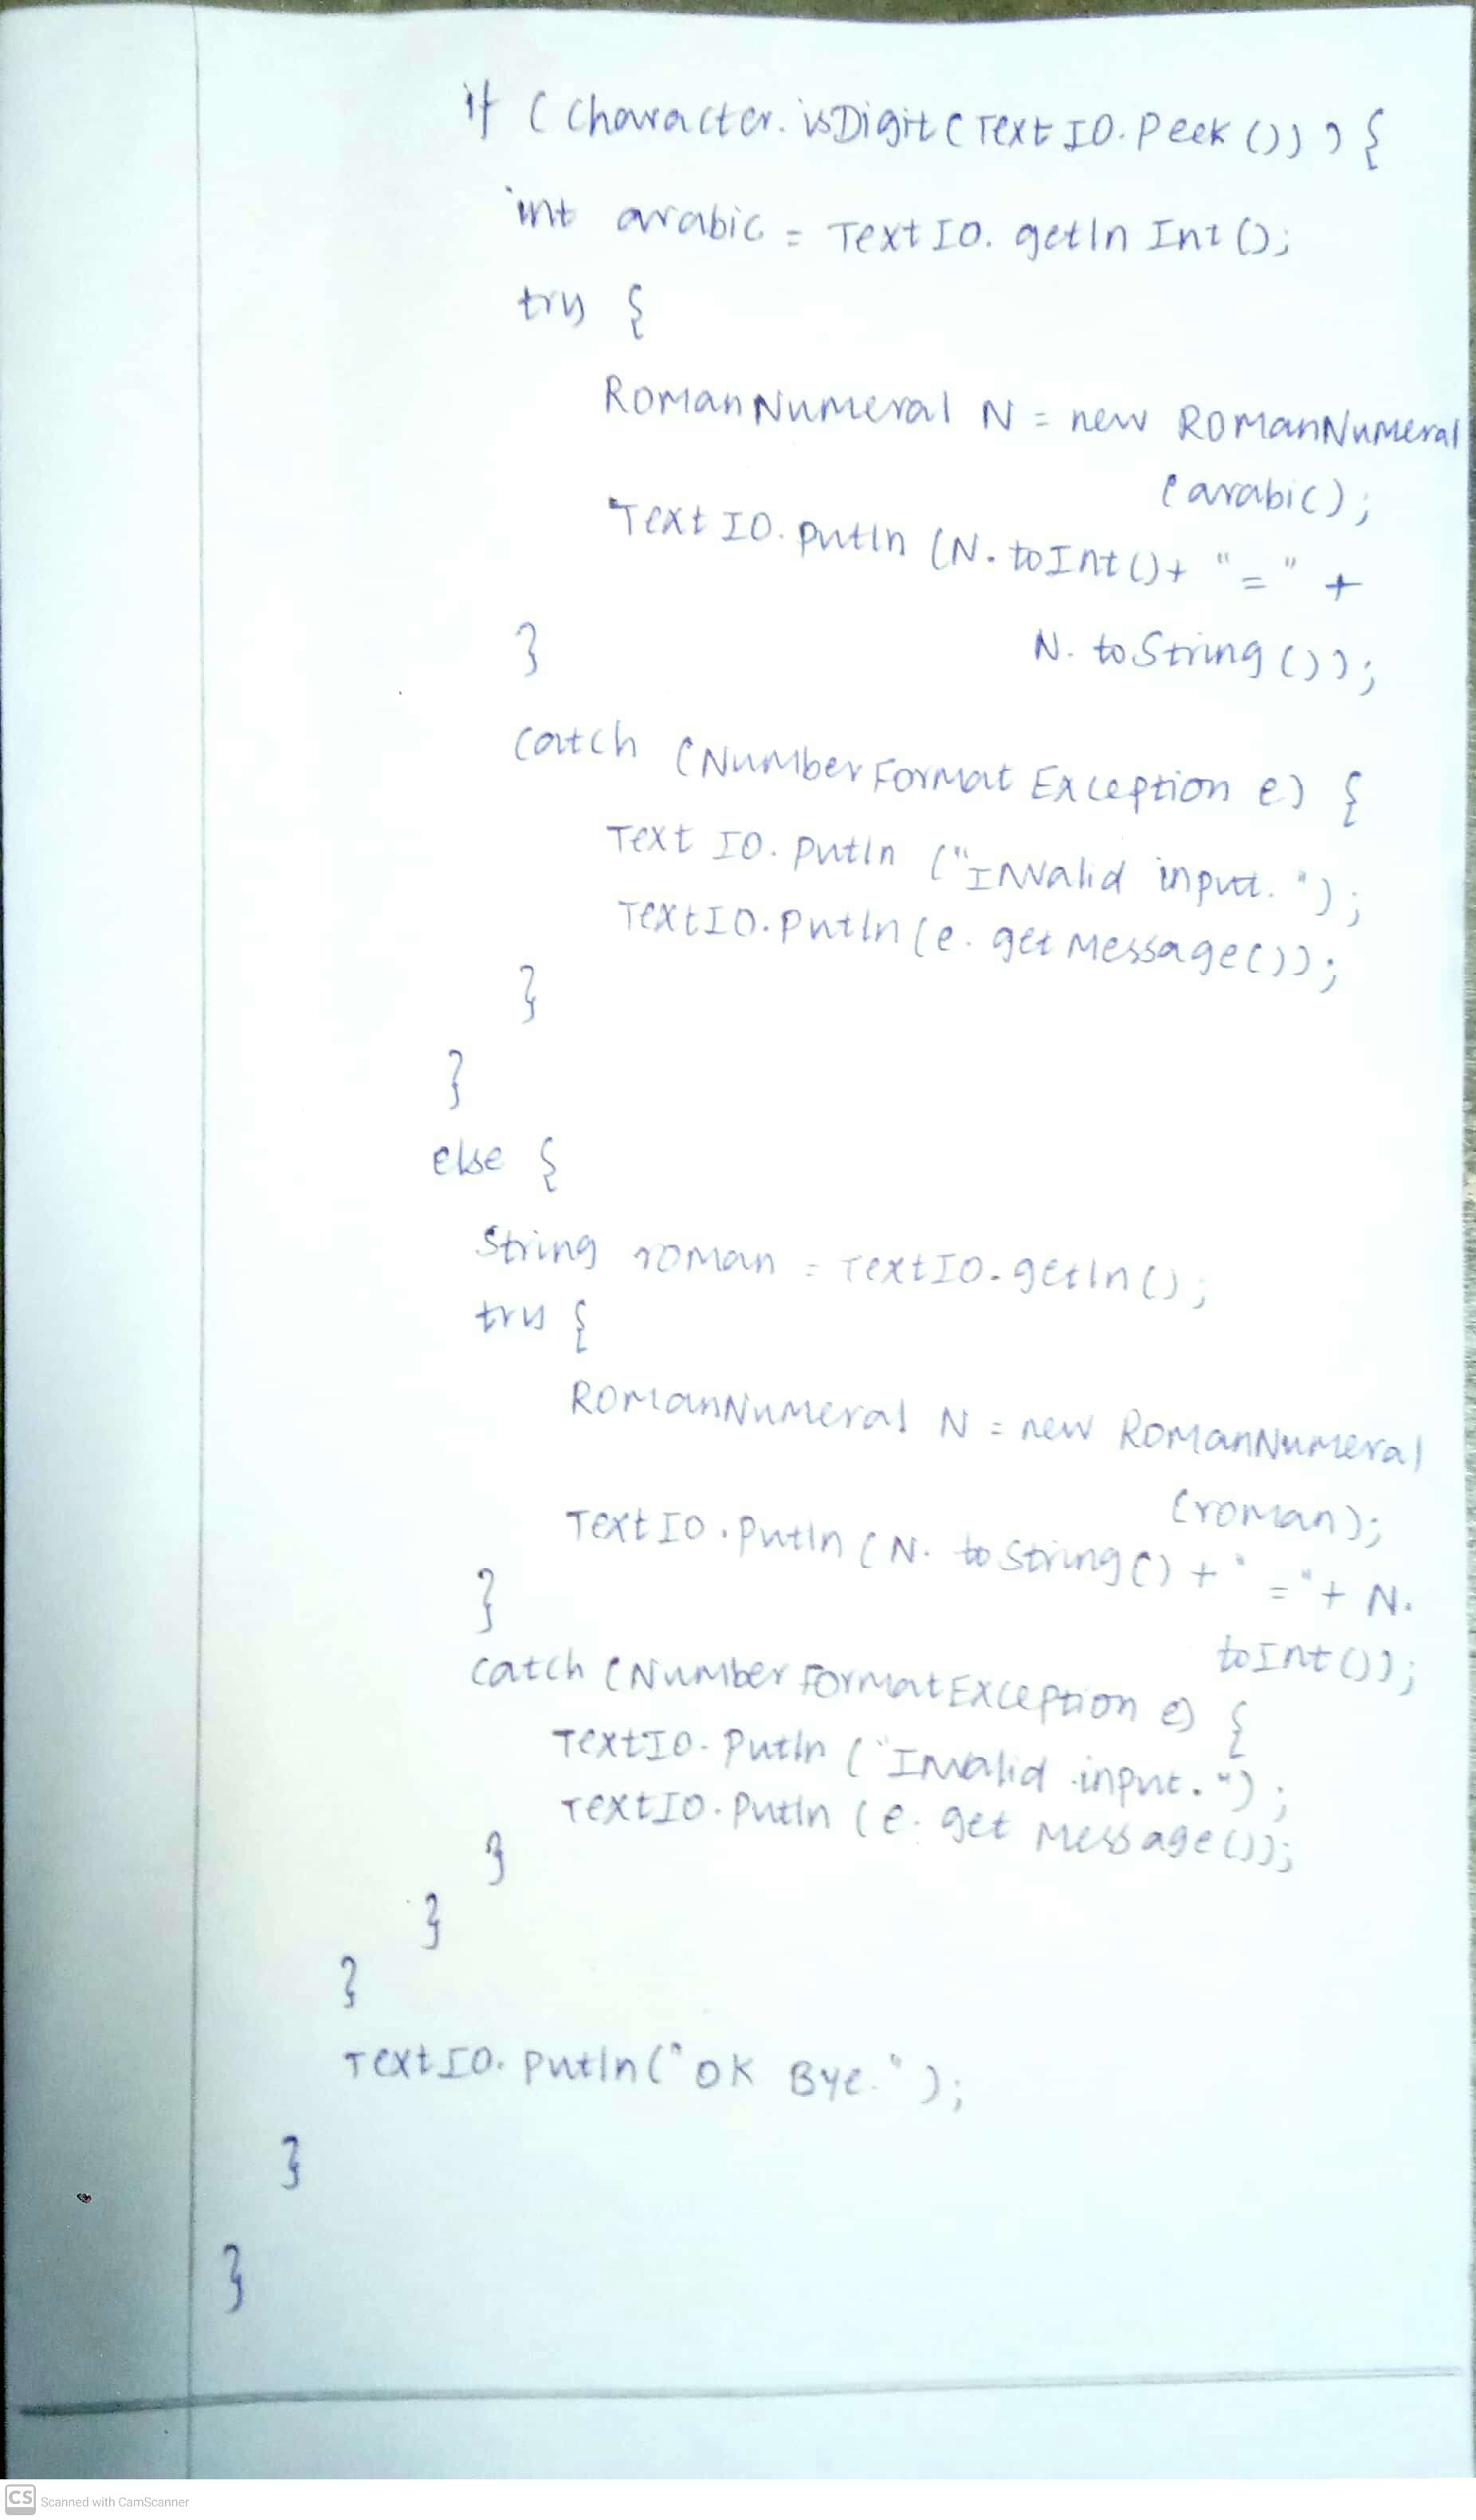 if (Character.isDigit(TextIO.Peek())) {
int arabic = TextIO.getln Int();
try {
RomanNumeral N = new RomanNumeral
(arabic);
TextIO.putln (N.toInt()+ "=" +
N.toString());
}
catch (NumberFormatException e) {
TextIO.putln ("Invalid input.");
TextIO.putln(e.getMessage());
}
}
else {
String roman = TextIO.getln();
try {
RomanNumeral N = new RomanNumeral
(roman);
TextIO.putln (N.toString() + "="+ N.
toInt());
}
catch (NumberFormatException e) {
TextIO.putln ("Invalid input.");
TextIO.putln (e.getMessage());
}
}
}
TextIO.putln("OK Bye.");
}
}
CS Scanned with CamScanner